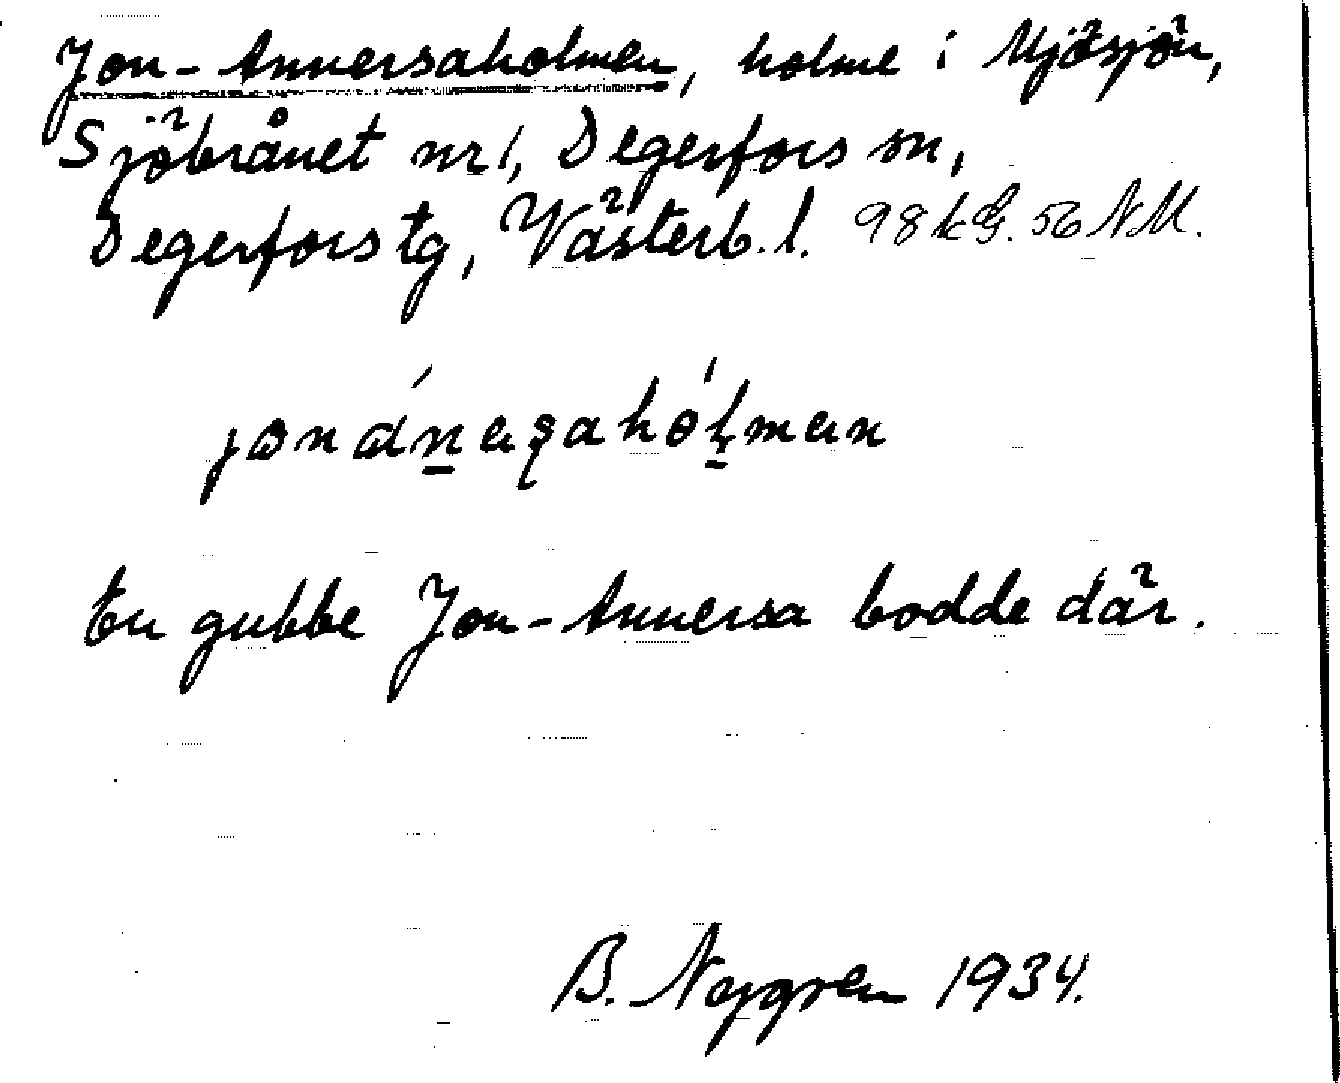 Jon-Annersaholmen, holme i Mjösjön,
Sjöbrånet nr 1, Degerfors sn,
Degerfors tg, Västerb. l. 98 k G. 56 NM.
En gubbe Jon-Annersa bodde där.
B. Nygren 1934.